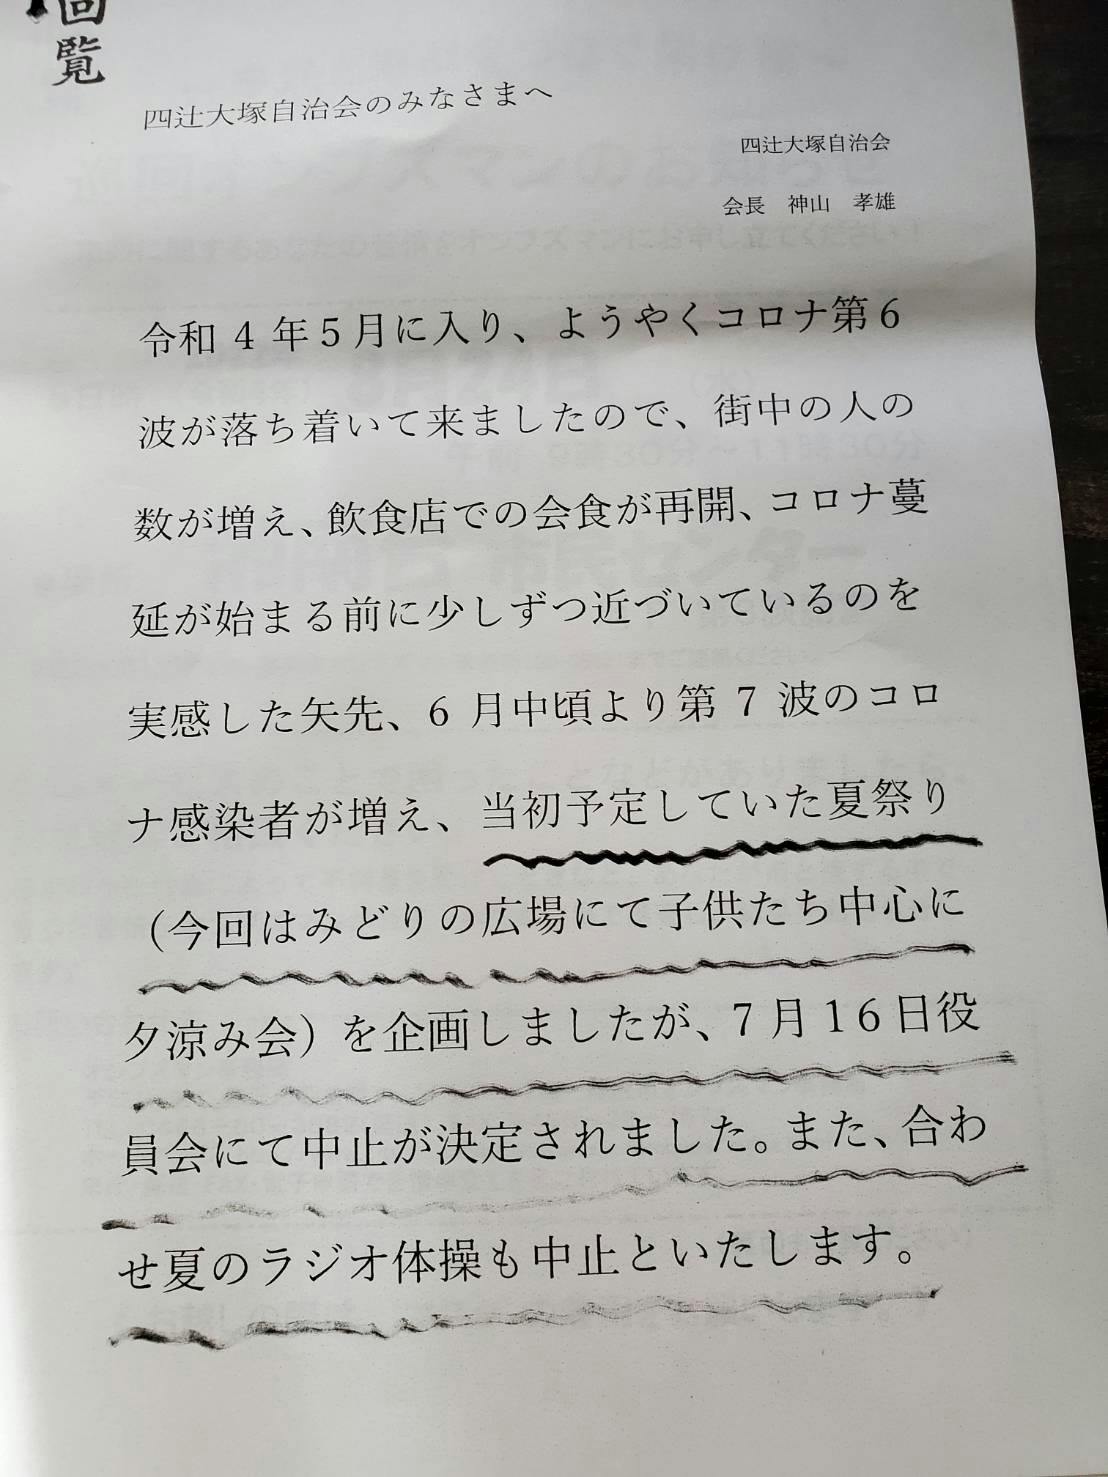 回覧
四辻大塚自治会のみなさまへ
四辻大塚自治会
会長　神山　孝雄
令和 4 年5月に入り、ようやくコロナ第6
波が落ち着いて来ましたので、街中の人の
数が増え、飲食店での会食が再開、コロナ蔓
延が始まる前に少しずつ近づいているのを
実感した矢先、6 月中頃より第 7 波のコロ
ナ感染者が増え、当初予定していた夏祭り
（今回はみどりの広場にて子供たち中心に
夕涼み会）を企画しましたが、7月16日役
員会にて中止が決定されました。また、合わ
せ夏のラジオ体操も中止といたします。